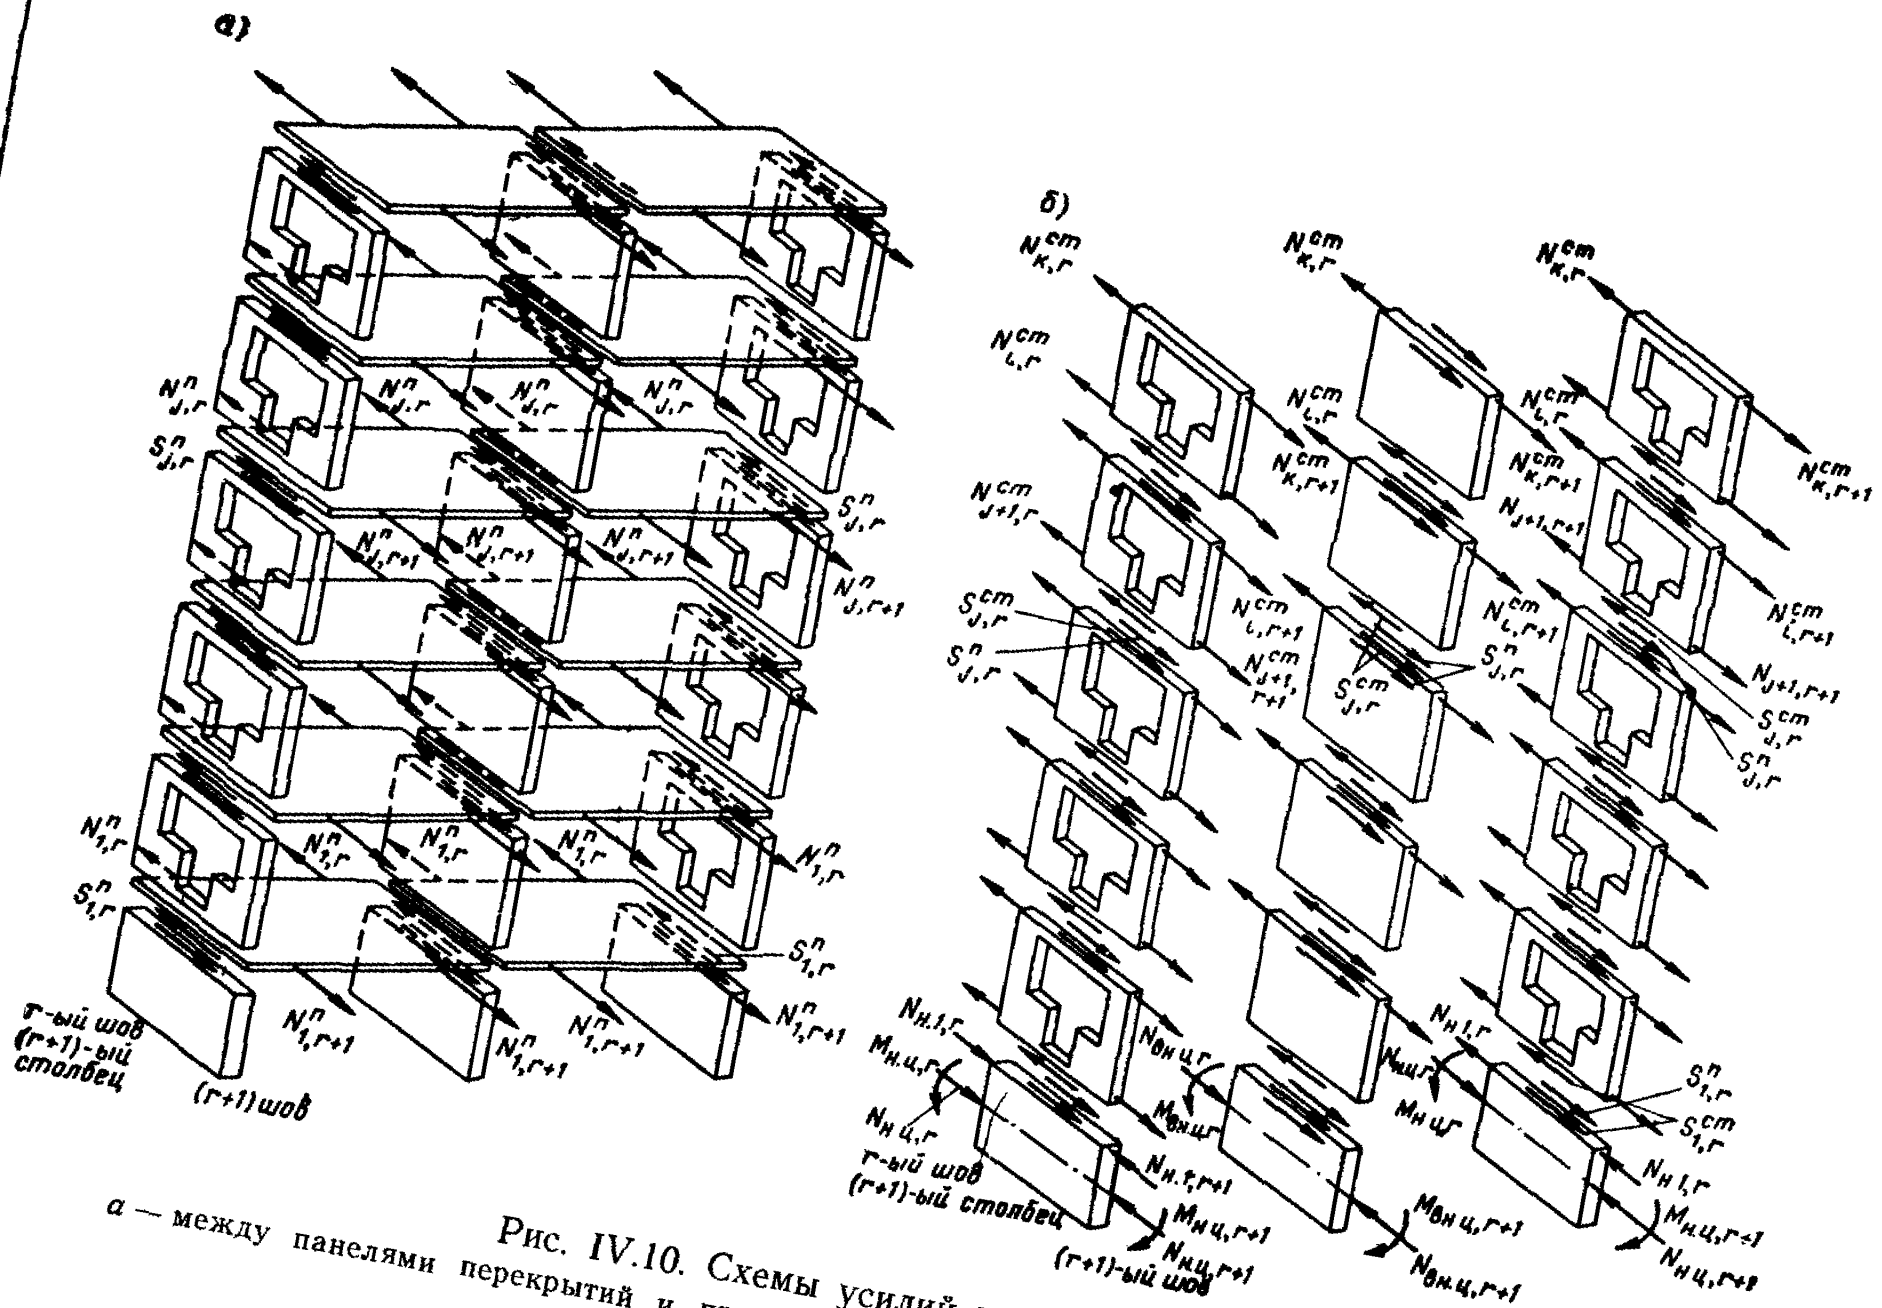 а)
N^п_{j,r}
N^п_{j,r}
N^п_{j,r}
N^п_{j,r}
S^п_{j,r}
S^п_{j,r}
N^п_{j,r+1}
N^п_{j,r+1}
N^п_{j,r+1}
N^п_{j,r+1}
N^п_{1,r}
N^п_{1,r}
N^п_{1,r}
N^п_{1,r}
N^п_{1,r}
S^п_{1,r}
S^п_{1,r}
N^п_{1,r+1}
N^п_{1,r+1}
N^п_{1,r+1}
N^п_{1,r+1}
r-ый шов
(r+1)-ый
столбец
(r+1) шов
б)
N^{ст}_{к,r}
N^{ст}_{к,r}
N^{ст}_{к,r}
N^{ст}_{i,r}
N^{ст}_{i,r}
N^{ст}_{i,r}
N^{ст}_{к,r+1}
N^{ст}_{к,r+1}
N^{ст}_{к,r+1}
N^{ст}_{j+1,r}
N_{j+1,r+1}
N^{ст}_{i,r+1}
N^{ст}_{i,r+1}
N^{ст}_{i,r+1}
S^{ст}_{j,r}
S^п_{j,r}
N^{ст}_{j+1,r+1}
S^{ст}_{j,r}
S^п_{j,r}
N_{j+1,r+1}
S^{ст}_{j,r}
S^п_{j,r}
N_{н.1,r}
M_{н.ц,r}
N_{н.ц,r}
N_{вн.ц,r}
M_{вн.ц,r}
N_{н.1,r}
N_{н.ц,r}
M_{н.ц,r}
S^п_{1,r}
S^{ст}_{1,r}
r-ый шов
(r+1)-ый столбец
N_{н.1,r+1}
M_{н.ц,r+1}
N_{н.ц,r+1}
(r+1)-ый шов
M_{вн.ц,r+1}
N_{вн.ц,r+1}
N_{н.1,r}
M_{н.ц,r+1}
N_{н.ц,r+1}
Рис. IV.10. Схемы усилий
а — между панелями перекрытий и